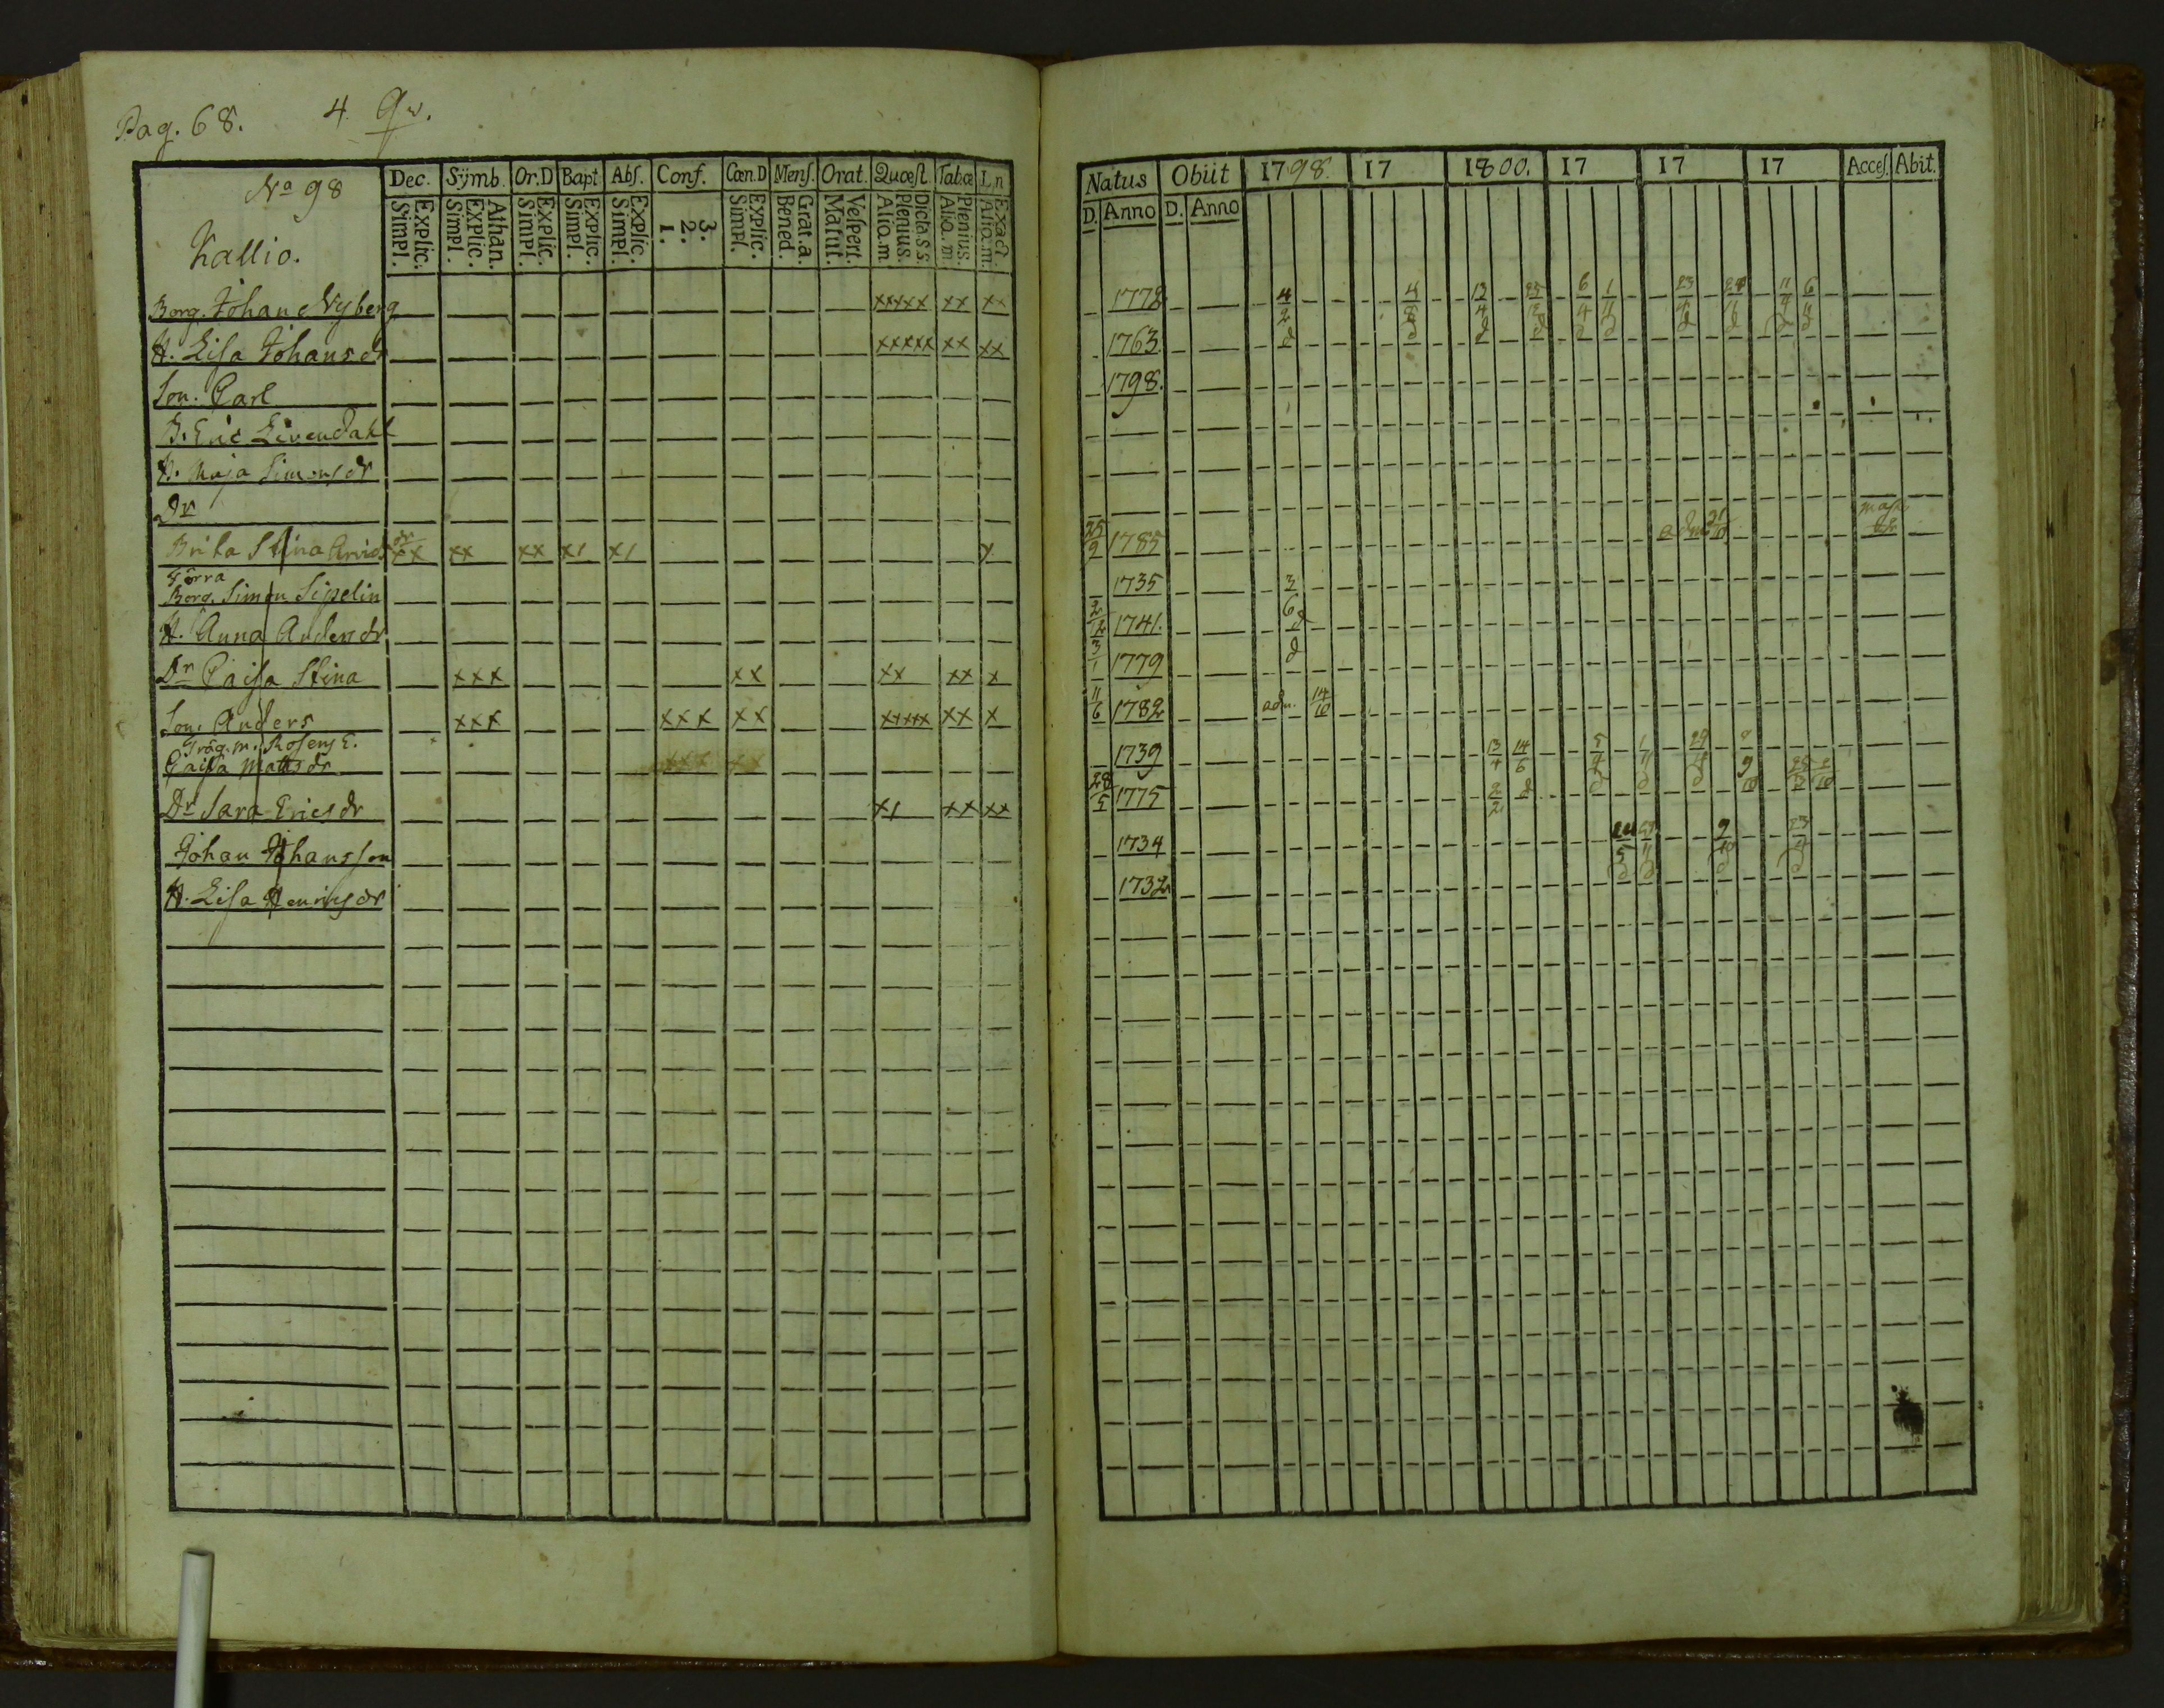 Pag. 68. 4 Qv.
No 98
Kallio.
Dec. Sÿmb. Or.D Bapt. Abſ. Conf. Cœn.D Menſ. Orat. Quæſt. Tabæ L n
Explic. Simpl.
Athan. Explic. Simpl.
Explic. Simpl.
Explic. Simpl.
Explic. Simpl.
3. 2. 1.
Explic. Simpl.
Grat. a. Bened.
Veſpert. Matut.
Dicta S.S. Plenius. Aliq. m.
Plenius. Aliq. m.
Exact. Aliq. m.
Borg. Johan Nyberg xxxxx xx xx
H. Lisa Johans dr xxxxx xx xx
Son. Carl
B. Eric Livendahl
H. Maja Simons dr
Dr
Brita Stina Arvids dr xx xx xx x1 x1 x
Förra
Borg. Simon Sipelin
H. Anna Anders dr
Dr Caisa Stina xxx xx xx xx x
Son. Anders xxx xxx xx xxxxx xx x
Träg. m. Rosens E.
Caisa Matts dr xxx xx
Dr Sara Erics dr x1 xx xx
Johan Johansson
H. Lisa Henrics dr
Natus Obiit 1798. 17 1800. 17 17 17 Acceſ. Abit.
D. Anno D. Anno
1772 4/2 4/8 13/4 25/12 6/4 1/11 23/4 11/4 6/11
1763 d d d d d d d d d
1798.
25/9 1785 adm 21/10
1735 3/6
2/12 1741. d
3/1 1779 d
11/6 1782 adm. 14/10
1739 13/4 14/6 5/4 1/11 29/4
28/5 1775 2/2 d d d d 9/10 2/10
1734 9/10 23/4
1732 d d d d